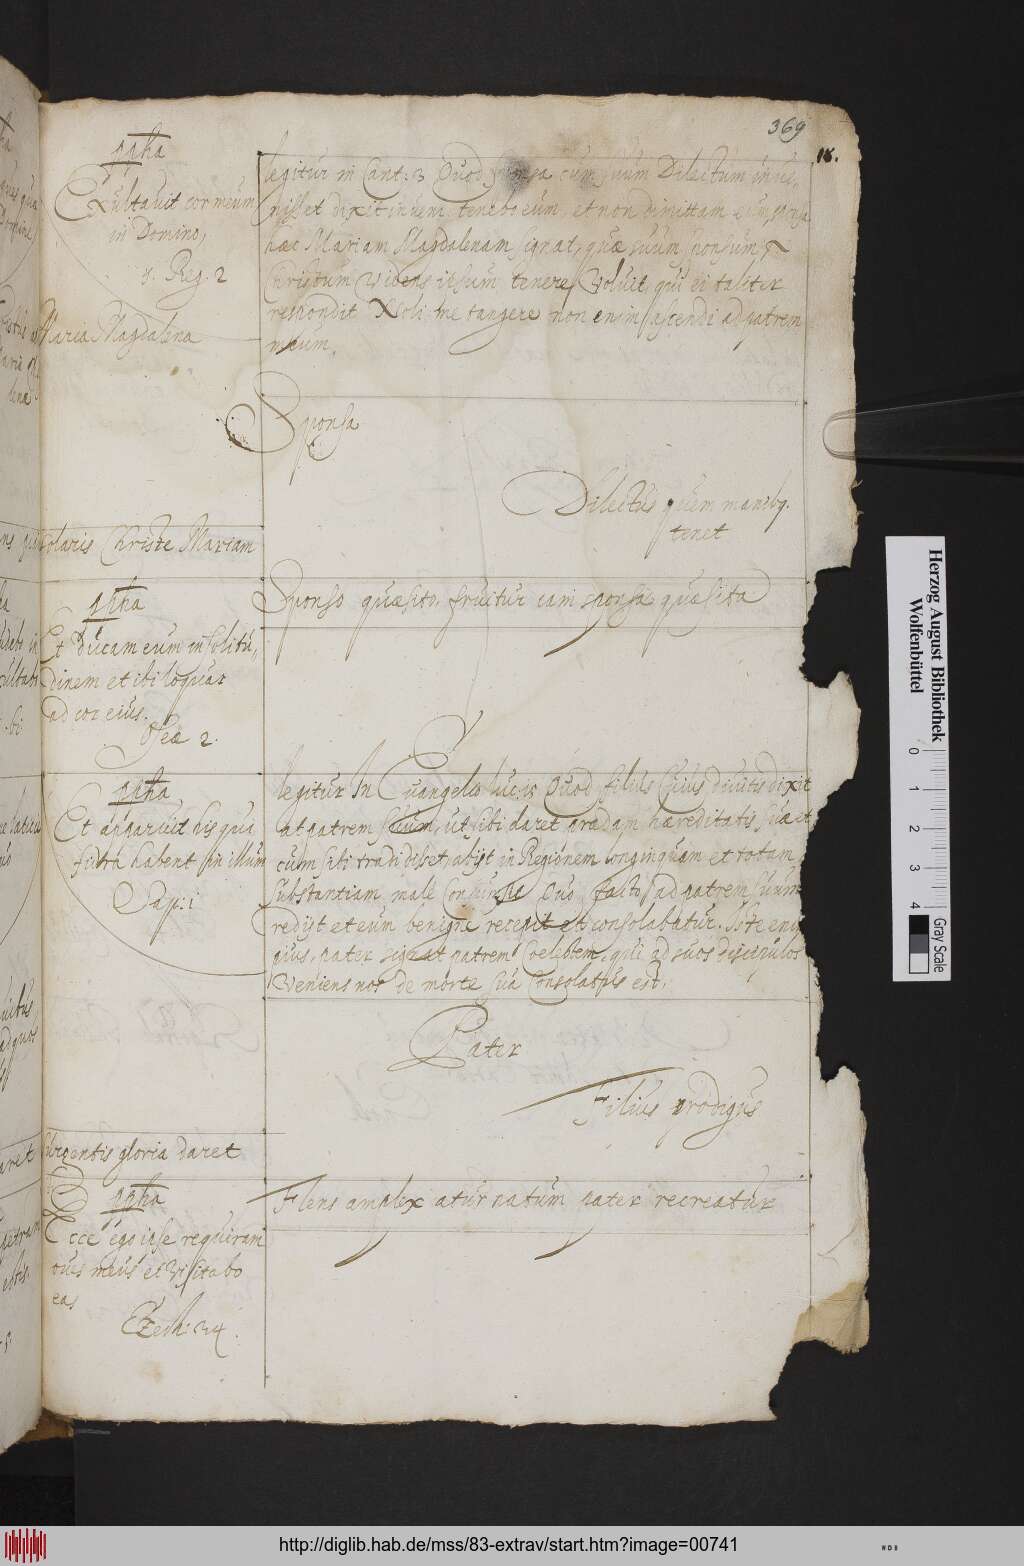 369
18.
ppha
Exultavit cor meum
in Domino,
1. Reg. 2
Maria Magdalena
legitur in Cant: 3 Quod sponsa cum suum Dilectum inve,
nisset dixit inveni, tenebo eum, et non dimittam eum, sponsa
haec Mariam Magdalenam signat, quae suum sponsum
Christum videns ipsum tenere voluit, qui ei taliter
respondit Noli me tangere non enim ascendi ad patrem
meum.
Sponsa
Dilectus quem manibq.
tenet
solaris Christe Mariam
Sponso quaesito fruitur iam sponsa quaesita
ppha
Et Ducam eum in solitu,
dinem et ibi loquar
ad cor eius.
Oseae 2.
ppha
Et apparuit his qui
fidem habent in illum
Sap: 1
legitur In Euangelio luc: 15 Quod filius Cuius divitis dixit
at patrem suum, ut sibi daret haereditatis suae et
cum sibi tradidisset, abijt in Regionem longinquam et totam
substantiam male Consumpsit Quo facto ad patrem suum
redijt et eum benigne recepit et consolabatur. Iste enim
pius pater signat patrem Celestem, qui ad suos discipulos
Veniens nos de morte sua Consolatus est.
Pater
Filius prodigus
surgentis gloria daret
Flens amplexatur natum pater recreatur
ppha
Ecce ego ipse requiram
oves meas et visitabo
eas
Ezech: 34.
Herzog August Bibliothek
Wolfenbüttel
0 1 2 3 4
Gray Scale
http://diglib.hab.de/mss/83-extrav/start.htm?image=00741